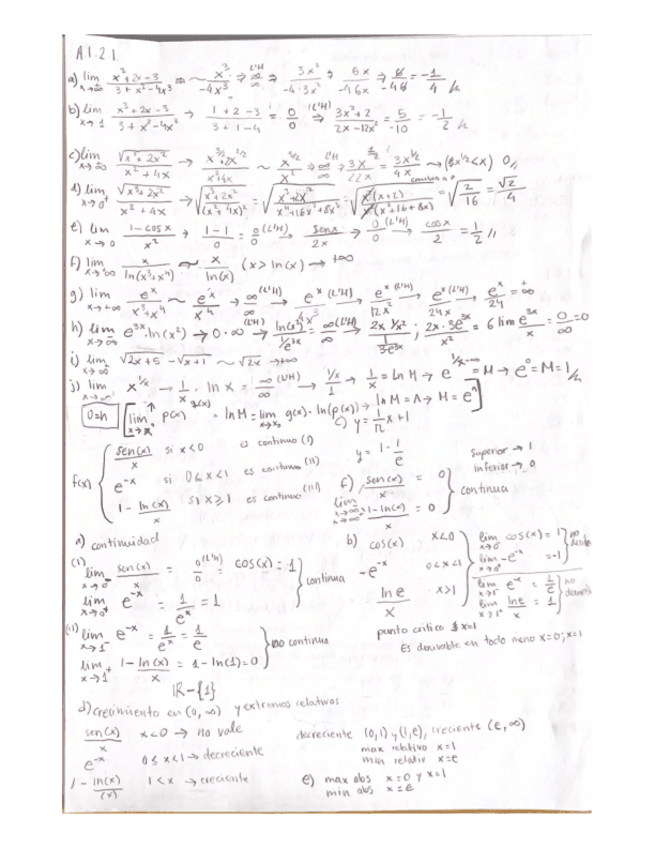 A.1.2.1.
a) lim x→∞ (x³+2x-3)/(3+x²-4x³) = ~ x³/(-4x³) → ∞/∞ (L'H) → 3x²/(-4·3x²) → 6x/(-46x) → 6/(-48) = -1/4
b) lim x→1 (x³+2x-3)/(3+x²-4x³) → (1+2-3)/(3+1-4) = 0/0 (L'H) → (3x²+2)/(2x-12x²) = 5/-10 = -1/2
c) lim x→∞ √(x³+2x²)/(x²+4x) → ~ → ∞/∞ L'H (x^1/2<x) 0
d) lim x→0⁺ √(x³+2x²)/(x²+4x) → √((x³+2x²)/(x²+4x)²) = √((x³+2x²)/(x⁴+16x²+8x³)) = √(x²(x+2)/x²(x²+16+8x)) = √(2/16) = √2/4
e) lim x→0 (1-cosx)/x² → (1-1)/0 = 0/0 (L'H) → senx/2x → 0/0 (L'H) → cosx/2 = 1/2
f) lim x→∞ x/ln(x³+x⁴) ~ x/ln(x) (x>ln(x)) → +∞
g) lim x→+∞ eˣ/(x³+x⁴) ~ eˣ/x⁴ → ∞/∞ (L'H) → eˣ/4x³ (L'H) → eˣ/12x² (L'H) → eˣ/24x (L'H) → eˣ/24 = +∞
h) lim x→∞ e³ˣ ln(x²) → 0·∞ (L'H) → ln(x²)/(1/e³ˣ) = ∞/∞ (L'H) → 2x 1/x²/(1/3e³ˣ) ; 2x·3e³ˣ/x² = 6 lim e³ˣ/x = 0/∞ = 0
i) lim x→∞ √(2x+5) - √(x+1) ~ √2x → +∞
j) lim x→∞ x^(1/x) → 1/x · ln x = ∞/∞ (L'H) → (1/x)/1 → 1/x = ln M → e^(1/x→∞) = M → e⁰ = M = 1
0=n [lim x→x p(x)^g(x) = ln M = lim x→x₀ g(x)·ln(p(x)) → ln M = A → M = e^A]
c) y = 1/π x+1
f(x) { sen(x)/x si x<0 es continuo (I)
e⁻ˣ si 0≤x<1 es continuo (II)
1 - ln(x)/x si x≥1 es continuo (III)
y = 1 - 1/e
f) sen(x)/x = 0
lim x→∞ 1-ln(x)/x = 0 } continua
Superior → 1
Inferior → 0
a) continuidad
(I) lim x→0⁻ sen(x)/x = 0/0 (L'H) = cos(x) = 1
lim x→0⁺ e⁻ˣ = 1/eˣ = 1 } continua
(II) lim x→1⁻ e⁻ˣ = 1/eˣ = 1/e
lim x→1⁺ 1-ln(x)/x = 1-ln(1)=0 } no continua
IR-{1}
b) cos(x) x<0
-e⁻ˣ 0<x<1
ln e/x x>1
lim x→0⁻ cos(x) = 1
lim x→0⁺ -e⁻ˣ = -1 } no
lim x→1⁻ e⁻ˣ = 1/e
lim x→1⁺ ln e/x = 1 } no
punto critico x=1
Es derivable en todo meno x=0; x=1
d) crecimiento en (0, ∞) y extremos relativos
sen(x)/x x=0 → no vale
e⁻ˣ 0≤x<1 → decreciente
1 - ln(x)/(x) 1<x → creciente
decreciente (0,1) y (1,e), creciente (e, ∞)
max relativo x=1
min relativ x=e
e) max abs x=0 y x=1
min abs x=e